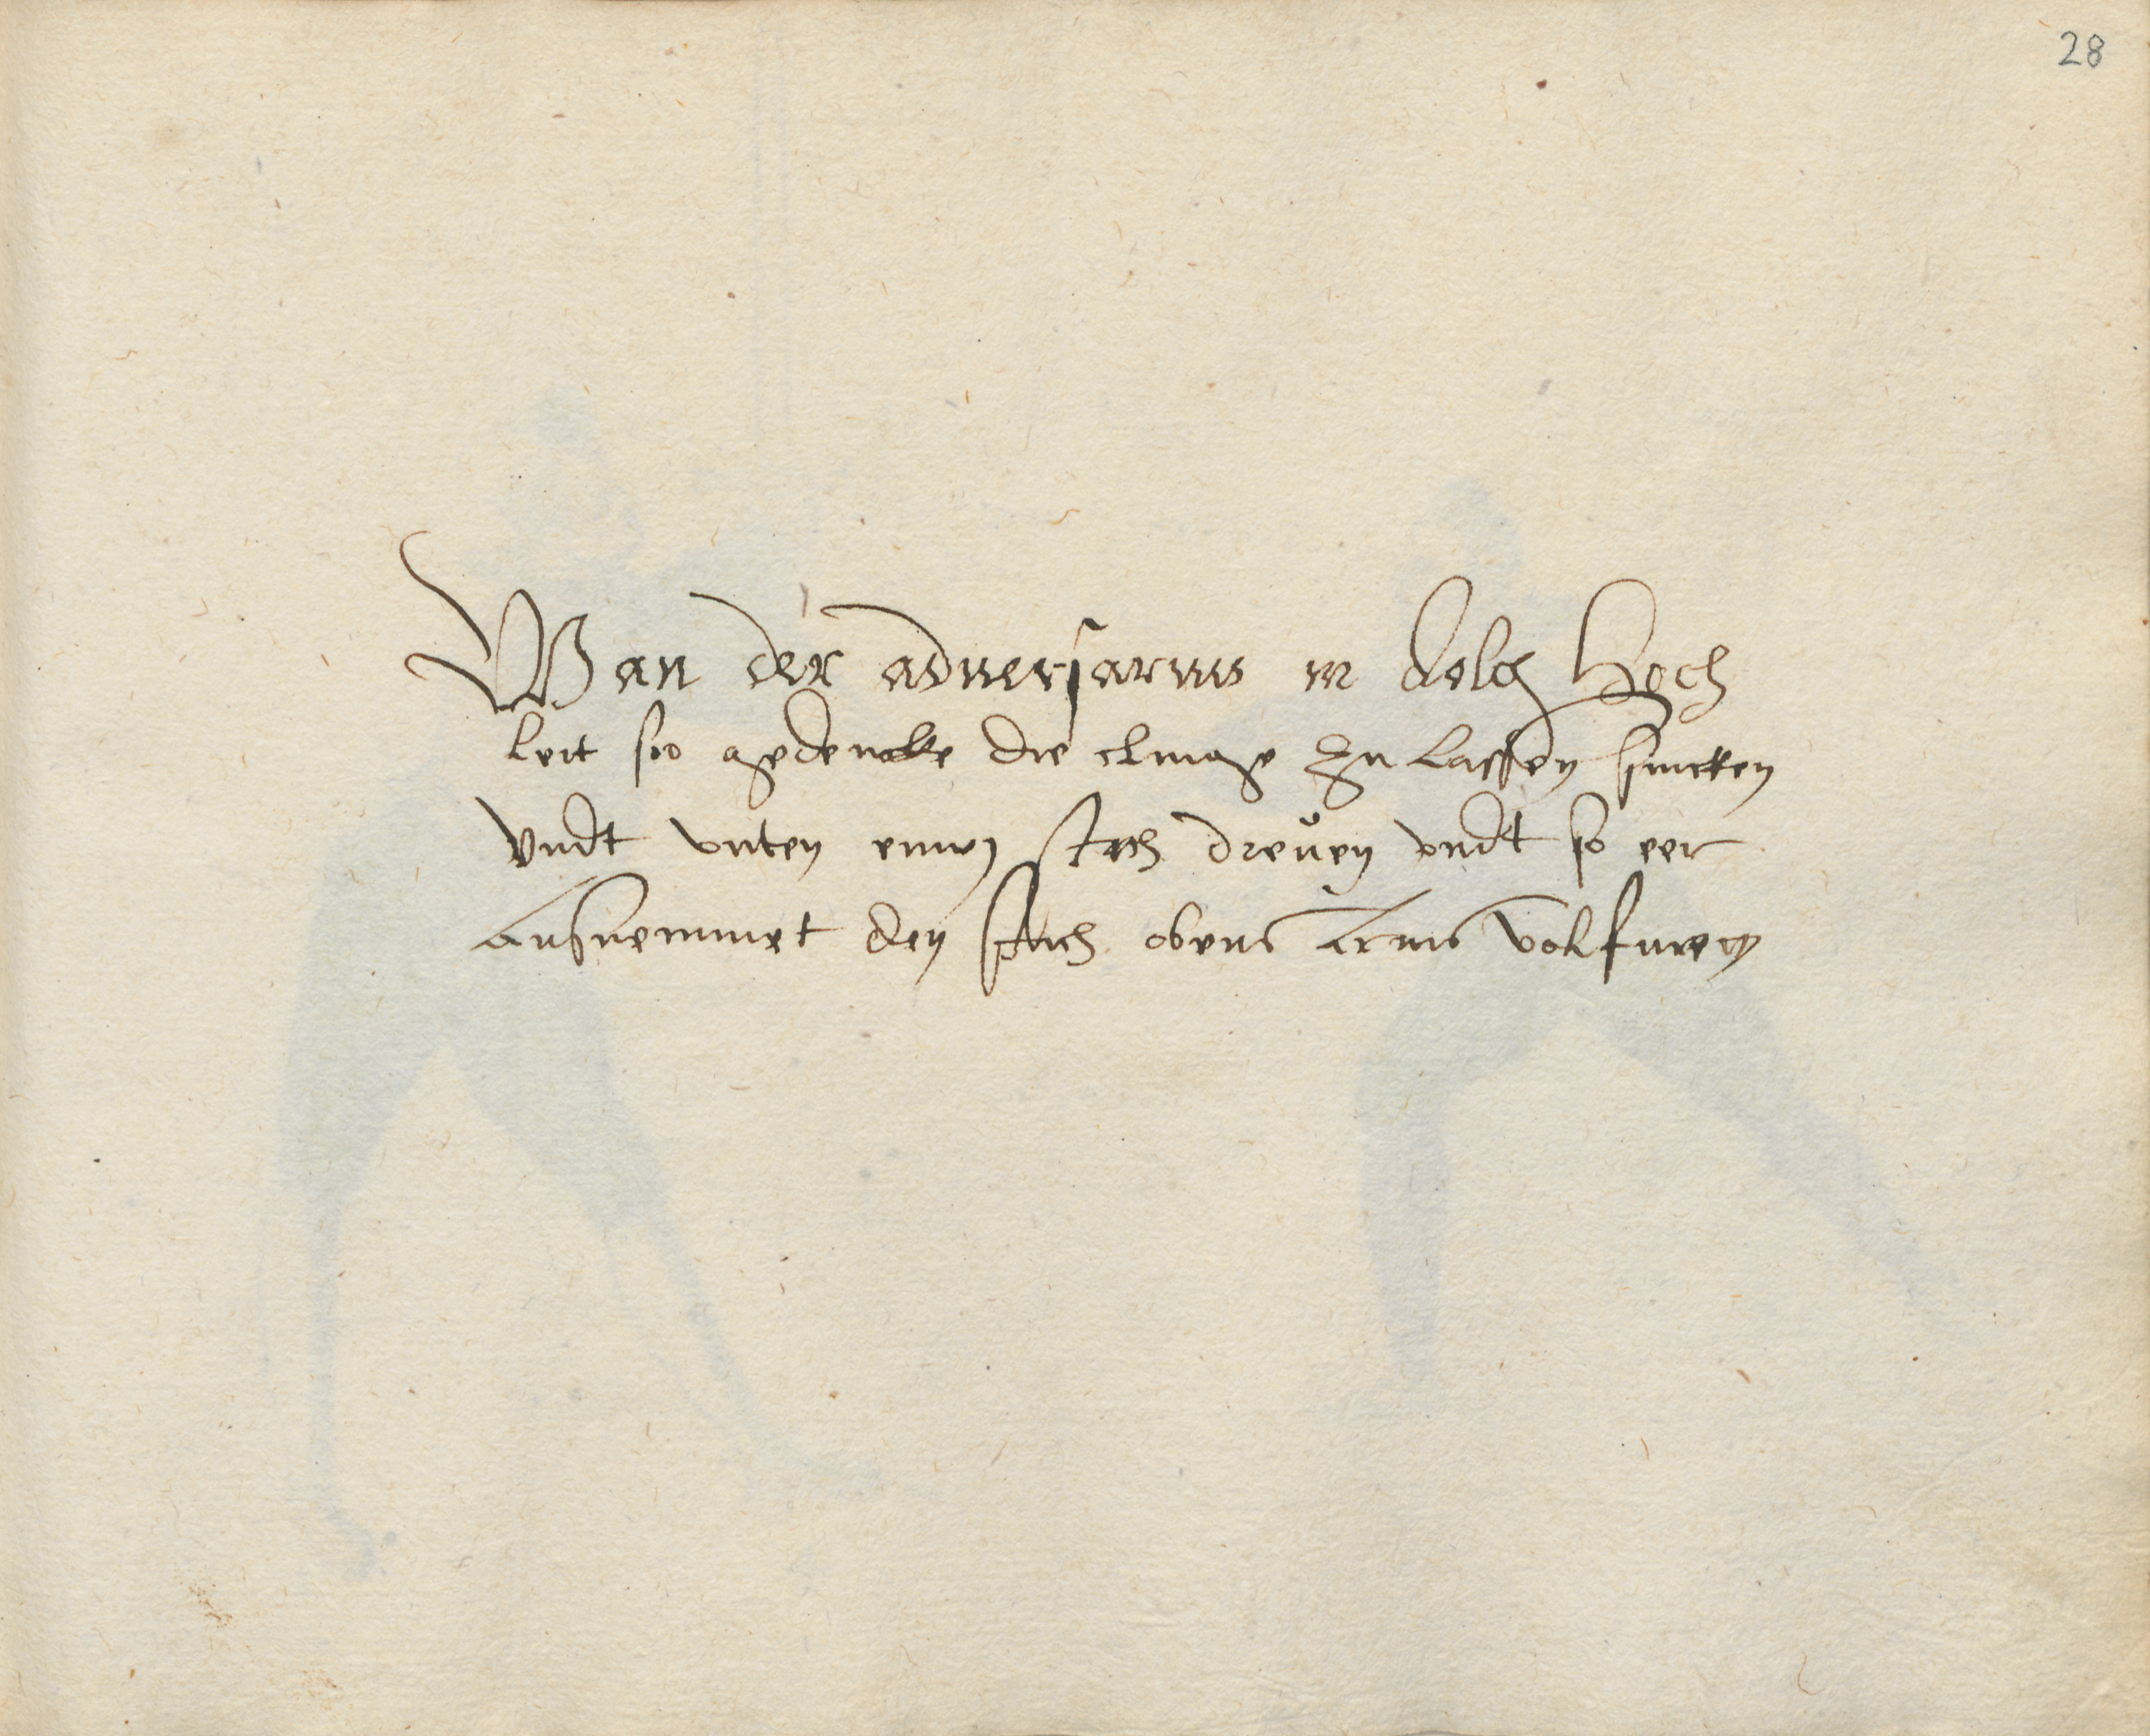 28
Wan der adversarius in dolch Hoch
leit so gedencke die clinge Zu lassen sincken
Vndt vnten einen stich dreŭen vndt so eer
Ausnemmet den stich obens Arms volfuren